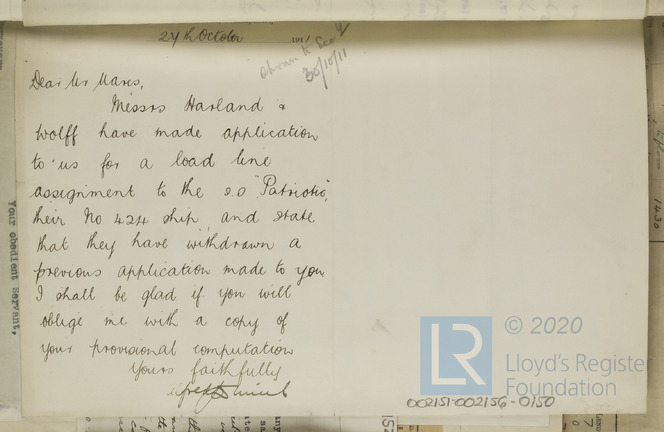 27th October 1911
shown to Secy
30/10/11
Dear Mr Mares,
Messrs Harland &
Wolff have made application
to us for a load line
assignment to the s.s "Patriotic",
their No 424 ship, and state
that they have withdrawn a
previous application made to you.
I shall be glad if you will
oblige me with a copy of
your provisional computation
Yours faithfully
Your obedient servant,
1430
LR © 2020
Lloyd's Register
Foundation
002151-002156-0150